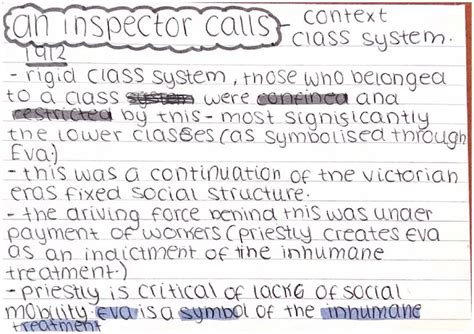 an inspector calls - context
class system.
1912
- rigid class system, those who belonged
to a class system were confined and
restricted by this - most significantly
the lower classes (as symbolised through
Eva.)
- this was a continuation of the victorian
eras fixed social structure.
- the driving force behind this was under
payment of workers (priestly creates eva
as an indictment of the inhumane
treatment.)
- priestly is critical of lack of social
mobility. eva is a symbol of the inhumane
treatment